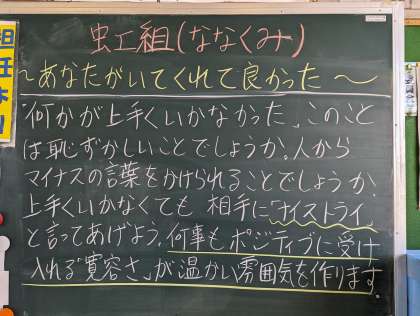 虹組(ななくみ)
～あなたがいてくれて良かった～
「何かが上手くいかなかった」このこと
は恥ずかしいことでしょうか。人から
マイナスの言葉をかけられることでしょうか。
上手くいかなくても 相手に「ナイストライ」
と言ってあげよう。何事もポジティブに受け
入れる「寛容さ」が温かい雰囲気を作ります。
担任より